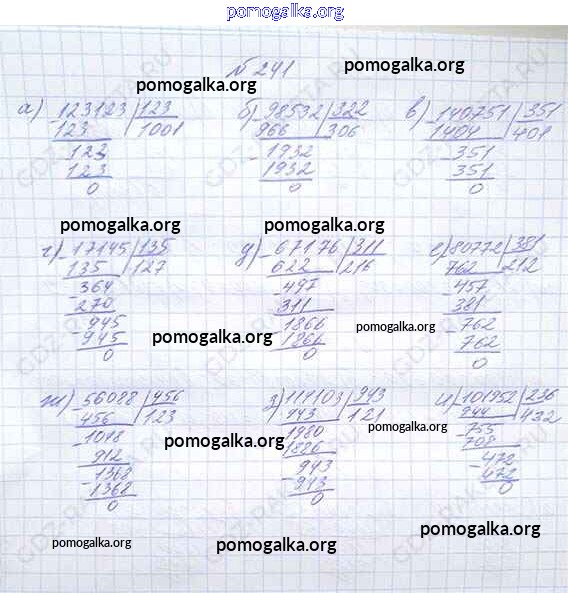 pomogalka.org
№ 241
pomogalka.org
pomogalka.org
а) - 123123 | 123
123 | 1001
- 123
123
0
б) - 98532 | 322
966 | 306
- 1932
1932
0
в) - 140751 | 351
1404 | 401
- 351
351
0
pomogalka.org
pomogalka.org
г) - 17145 | 135
135 | 127
- 364
270
- 945
945
0
д) - 67176 | 311
622 | 216
- 497
311
- 1866
1866
0
е) - 80772 | 381
762 | 212
- 457
381
- 762
762
0
pomogalka.org
pomogalka.org
ж) - 56088 | 456
456 | 123
- 1048
912
- 1368
1368
0
з) - 114103 | 943
943 | 121
- 1980
1886
- 943
943
0
и) - 101952 | 236
944 | 432
- 755
708
- 472
472
0
pomogalka.org
pomogalka.org
pomogalka.org
pomogalka.org
pomogalka.org